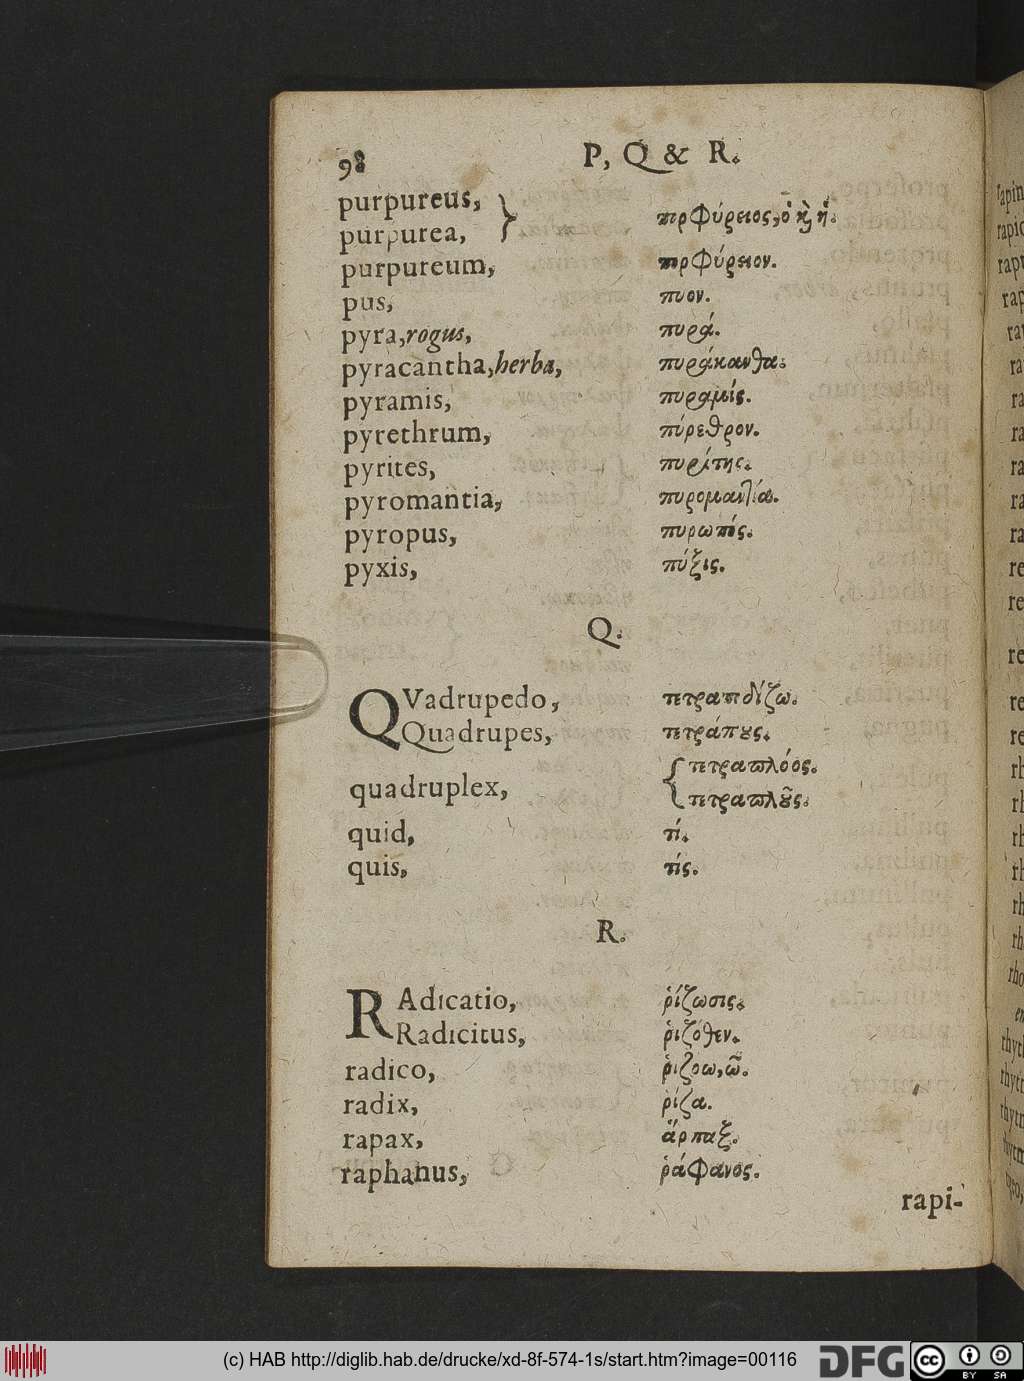 98 P, Q & R.
purpureus, } πορφύρειος, ὁ κỳ ἡ.
purpurea,
purpureum, πορφύρειον.
pus, πυον.
pyra, rogus, πυρά.
pyracantha, herba, πυράκανθα.
pyramis, πυραμίς.
pyrethrum, πύρεθρον.
pyrites, πυρίτης.
pyromantia, πυρομαντία.
pyropus, πυρωπός.
pyxis, πύξις.
Q.
QVadrupedo, τετραποδίζω.
Quadrupes, τετράπȣς.
quadruplex, { τετραπλόος.
τετραπλȣ͂ς.
quid, τί.
quis, τίς.
R.
RAdicatio, ῥίζωσις.
Radicitus, ῥιζόθεν.
radico, ῥιζοω, ῶ.
radix, ῥίζα.
rapax, ἅρπαξ.
raphanus, ῥάφανος.
rapi-
rapin
rapid
rap
ra
ra
ra
ra
ra
ra
ra
re
re
re
re
re
rh
rh
rh
rh
rh
rh
rho
(c) HAB http://diglib.hab.de/drucke/xd-8f-574-1s/start.htm?image=00116 DFG cc BY SA